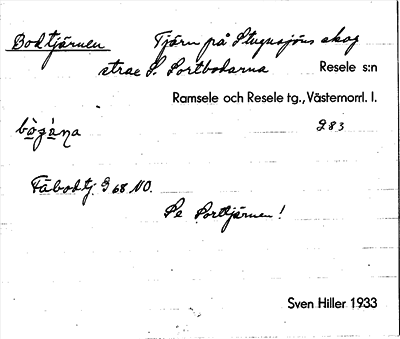 Bodtjärnen Tjärn på Stugusjöns skog
strax S. Sortbodarna Resele s:n
Ramsele och Resele tg., Västernorrl. l.
283
Fäbodtj. G 68 NO.
Se Sorttjärnen!
Sven Hiller 1933